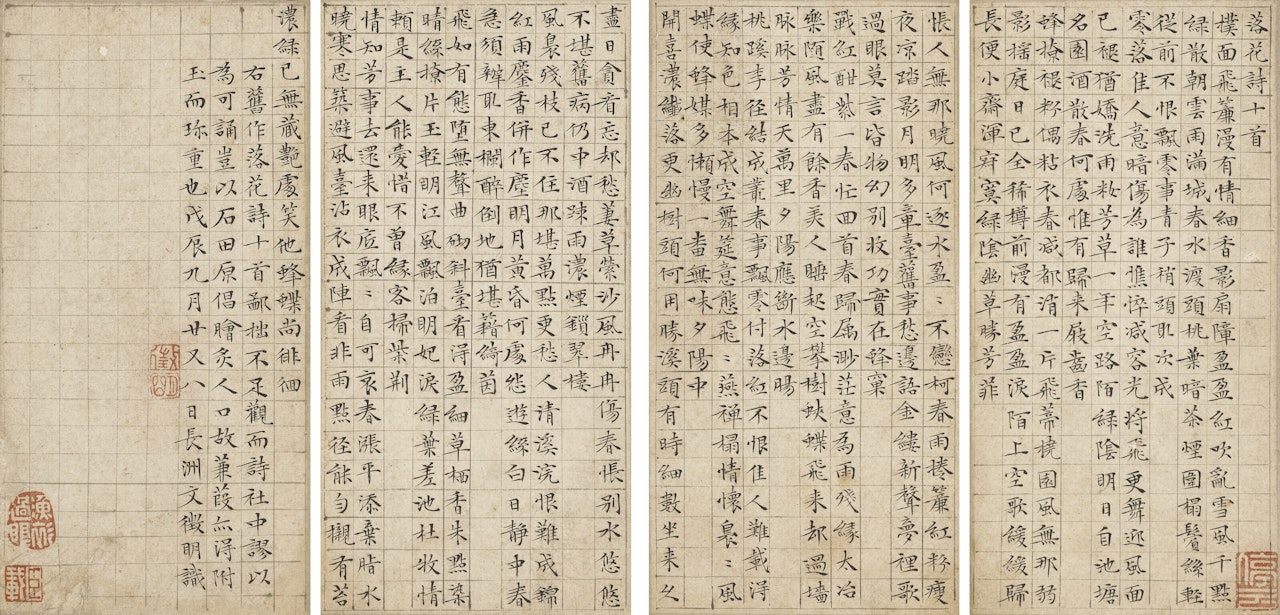 落花詩十首
撲面飛簾漫有情細香影扇障盈盈紅吹亂雪風千點
綠散朝雲雨滿城春水渡頭桃葉暗茶煙圍榻鬢絲輕
從前不恨飄零事青子稍頭取次成
零落佳人意暗傷為誰憔悴減容光將飛更舞迎風面
已褪猶嬌洗雨妝芳草一年空路陌綠陰明日自池塘
名園酒散春何處惟有歸来屐齒香
蜂撩褪粉偶粘衣春減都消一片飛蒂撓園風無那弱
影搖庭日已全稀樽前漫有盈盈淚陌上空歌緩緩歸
長便小齋渾寂寞綠陰幽草勝芳菲
悵人無那曉風何逐水盈〻不戀柯春雨捲簾紅粉瘦
夜凉踏影月明多章臺舊事愁邊語金縷新聲夢裡歌
過眼莫言皆物幻别收功實在蜂窠
戰紅酣紫一春忙囬首春歸屬渺茫意為雨殘緣太冶
樂隨風盡有餘香美人睡起空攀樹蛺蝶飛来却過墻
脉脉芳情天萬里夕陽應斷水邊腸
桃蹊李径結成叢春事飄零付落紅不恨佳人難載淂
緣知色相本成空舞筵意態飛〻燕禅榻情懷裊〻風
蝶使蜂媒多懶慢一番無味夕陽中
開喜濃纖落更幽樹頭何用勝溪頭有時細數坐来久
盡日貪看忘却愁蔞草縈沙風冉冉傷春悵别水悠悠
不堪舊病仍中酒踈雨濃煙鎖翠樓
風裊殘枝已不住那堪萬點更愁人清溪浣恨難成錦
紅雨塵香併作塵明月黄昏何處遊絲白日静中春
急須辦取東欄醉倒地猶堪籍綺茵
飛如有態堕無聲曲砌斜臺看淂盈細草栖香朱點染
晴絲撩片玉輕明江風飄泊明妃淚綠葉差池杜牧情
頼是主人能愛惜不曽緣客掃柴荆
情知芳事去還来眼底飄〻自可哀春漲平添棄脂水
曉寒思築避風臺沾衣成陣看非雨點径能勻襯有苔
濃綠已無藏艶處笑他蜂蝶尚徘徊
右舊作落花詩十首鄙拙不足觀而詩社中謬以
為可誦豈以石田原倡膾炙人口故蒹葭亦淂附
玉而珎重也戊辰九月廿又八日長洲文徴明識
徵明